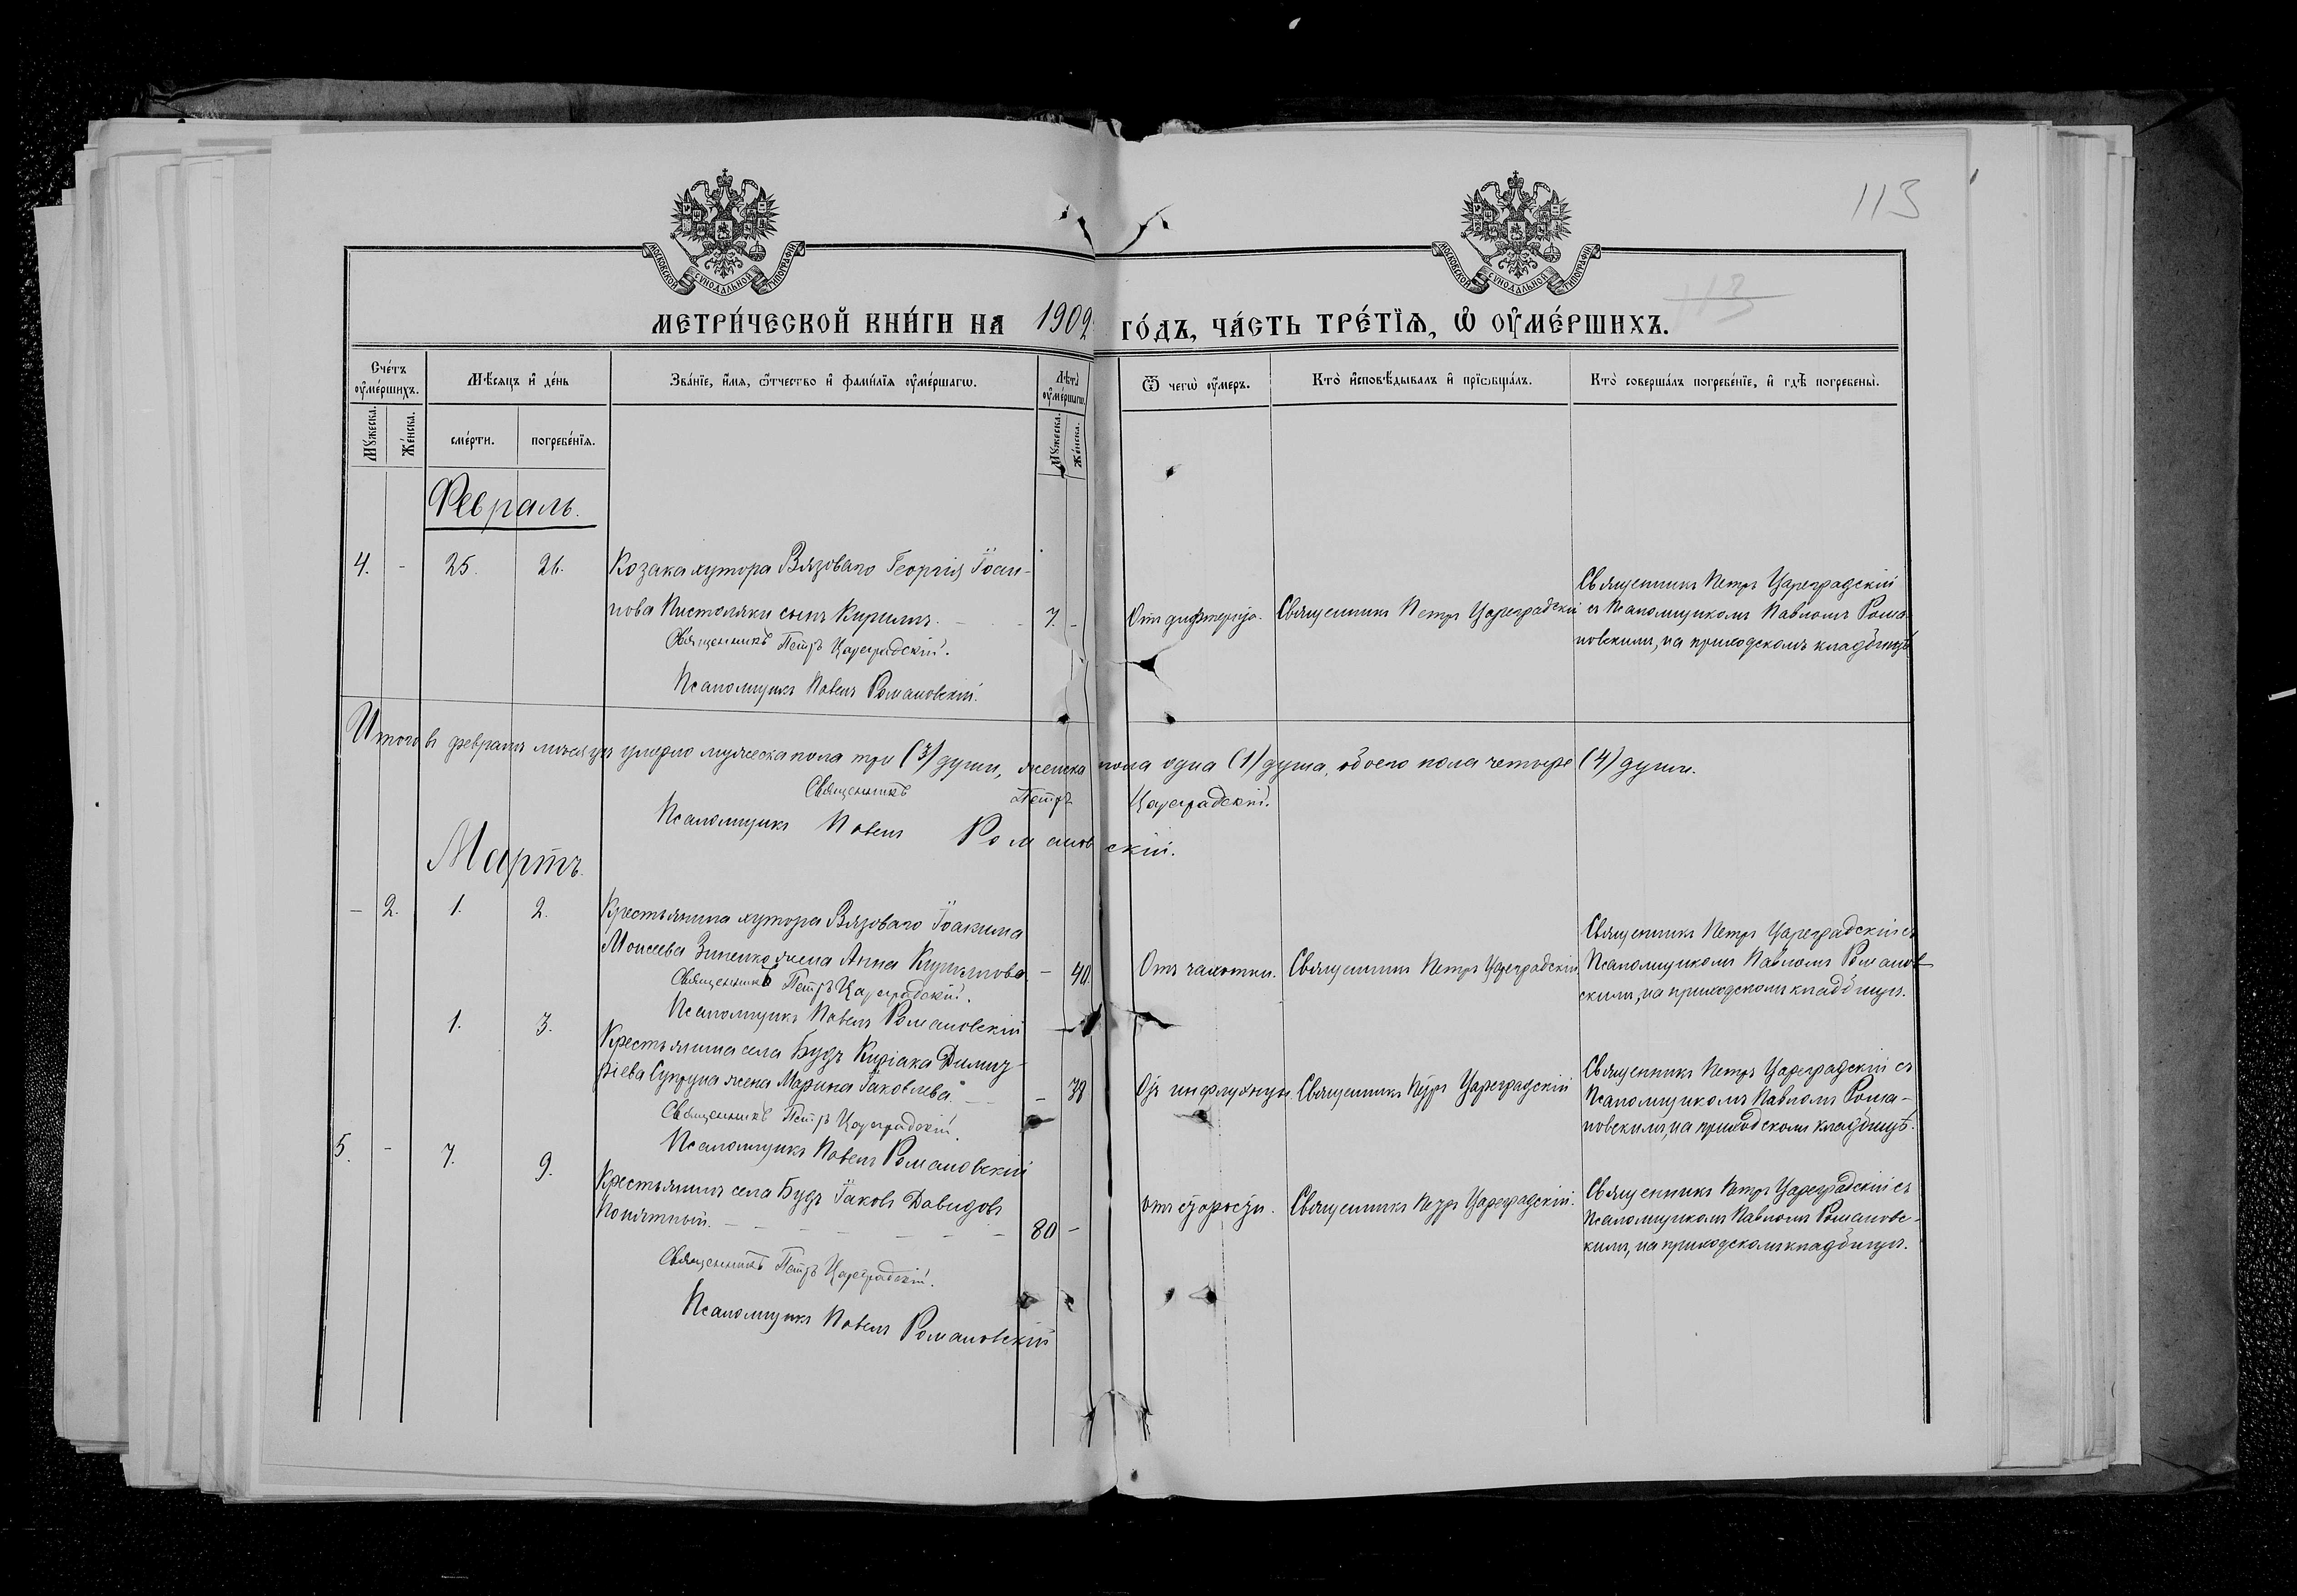 113
МОСКОВСКОЙ СУНОДАЛЬНОЙ ТИПОГРАФІИ
МОСКОВСКОЙ СУНОДАЛЬНОЙ ТИПОГРАФІИ
113
МЕТРИ́ЧЕСКОЙ КНИ́ГИ НА 1902 ГО́ДЪ, ЧА́СТЬ ТРЕ́ТЇѦ, Ѽ ОУ҆МЕ́РШИХЪ.
Сче́тъ оу҆ме́ршихъ.
Мѣ́сяцъ и҆ де́нь
Зва́нїе, и҆́мя, ѻ҆́тчество и҆ фами́лїя оу҆ме́ршагѡ.
Лѣ́та оу҆ме́ршагѡ.
Ѿ чегѡ̀ оу҆́меръ.
Кто̀ и҆сповѣ́дывалъ и҆ прїѡбща́лъ.
Кто̀ соверша́лъ погребе́нїе, и҆ гдѣ̀ погребены̀.
Му́жеска.
Же́нска.
сме́рти.
погребе́нїя.
Му́жеска.
Же́нска.
Февраль.
4. - 25. 26. Козака хутора Вязоваго Георгія Іоан-
нова Пистоляки сынъ Кириллъ. - 7. -
Отъ дифтерита. Священникъ Петръ Цареградскій
Священникъ Петръ Цареградскій
съ Псаломщикомъ Павломъ Рома-
новскимъ, на приходскомъ кладбищѣ
Священникъ Петръ Цареградскій.
Псаломщикъ Павелъ Романовскій.
Итого въ февралѣ мѣсяцѣ умерло мужеска пола три (3) души, женска пола одна (1) душа, обоего пола четыре (4) души.
Священникъ Петръ Цареградскій.
Псаломщикъ Павелъ Романовскій.
Мартъ.
- 2. 1. 2. Крестьянина хутора Вязоваго Іоакима
Моисеева Зиненко жена Анна Кириллова. - 40.
Отъ чахотки. Священникъ Петръ Цареградскій
Священникъ Петръ Цареградскій съ
Псаломщикомъ Павломъ Романов
скимъ, на приходскомъ кладбищѣ.
Священникъ Петръ Цареградскій.
Псаломщикъ Павелъ Романовскій
1. 3. Крестьянина села Будъ Киріака Димит-
ріева Супруна жена Марина Іаковлева. - 38
От инфлуэнцы. Священникъ Петръ Цареградскій
Священникъ Петръ Цареградскій съ
Псаломщикомъ Павломъ Рома-
новскимъ, на приходскомъ кладбищѣ.
Священникъ Петръ Цареградскій.
Псаломщикъ Павелъ Романовскій
5. - 7. 9. Крестьянинъ села Будъ Іаковъ Давидовъ
Понятный. - 80 -
отъ старости. Священникъ Петръ Цареградскій.
Священникъ Петръ Цареградскій съ
Псаломщикомъ Павломъ Романовс-
кимъ, на приходскомъ кладбищѣ.
Священникъ Петръ Цареградскій.
Псаломщикъ Павелъ Романовскій